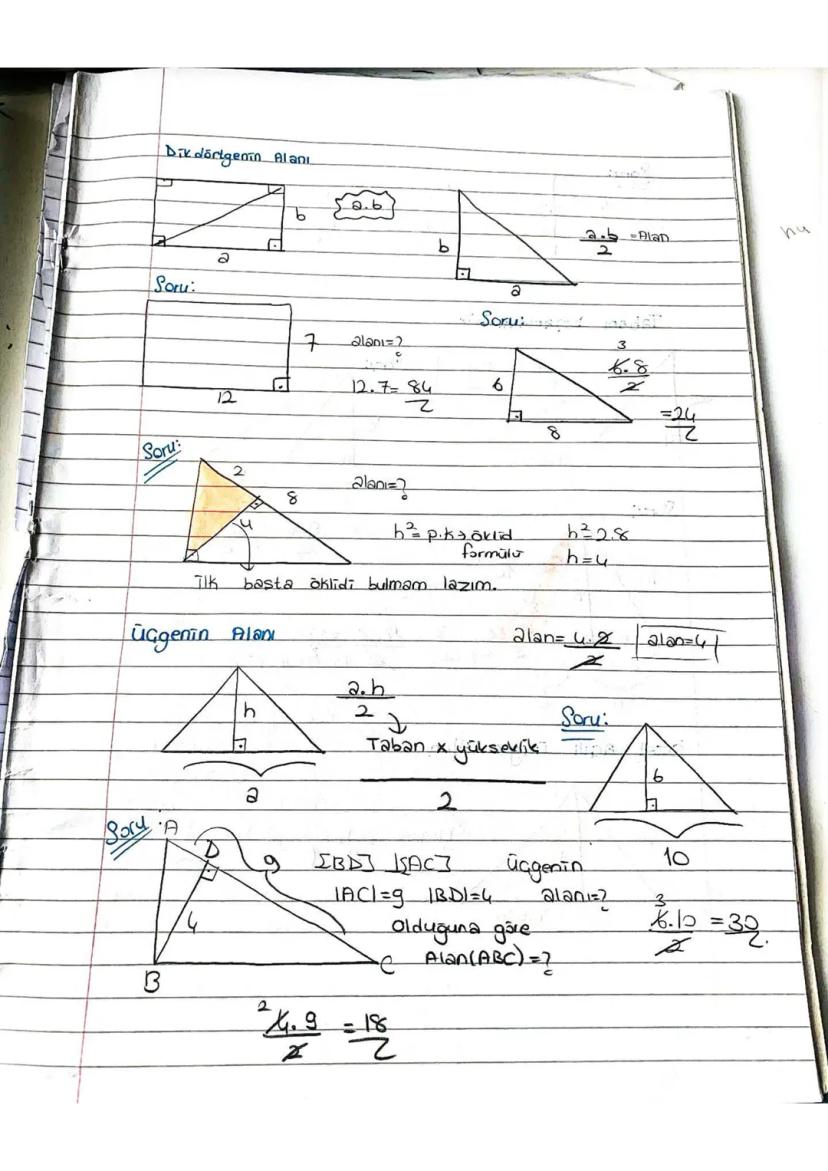 Dikdörtgenin Alanı
b
a.b
a
b
a
a.b = Alan
2
Soru:
7
12
alanı=?
12.7= 84
Soru:
6
8
3
6.8
2
=24
Soru:
2
8
4
alanı=?
h²= p.k → öklid
formülü
h²=2.8
h=4
ilk basta öklidi bulmam lazım.
üçgenin Alanı
alan= 4.2
2
alan=4
h
a
a.h
2
Taban x yükseklik
2
Soru:
6
10
üçgenin
alanı=?
3
6.10 = 30
2
Soru:
A
D
9
4
B
C
[BD] ⊥ [AC]
|AC|=9 |BD|=4
olduğuna göre
Alan(ABC)=?
2
4.9 = 18
2